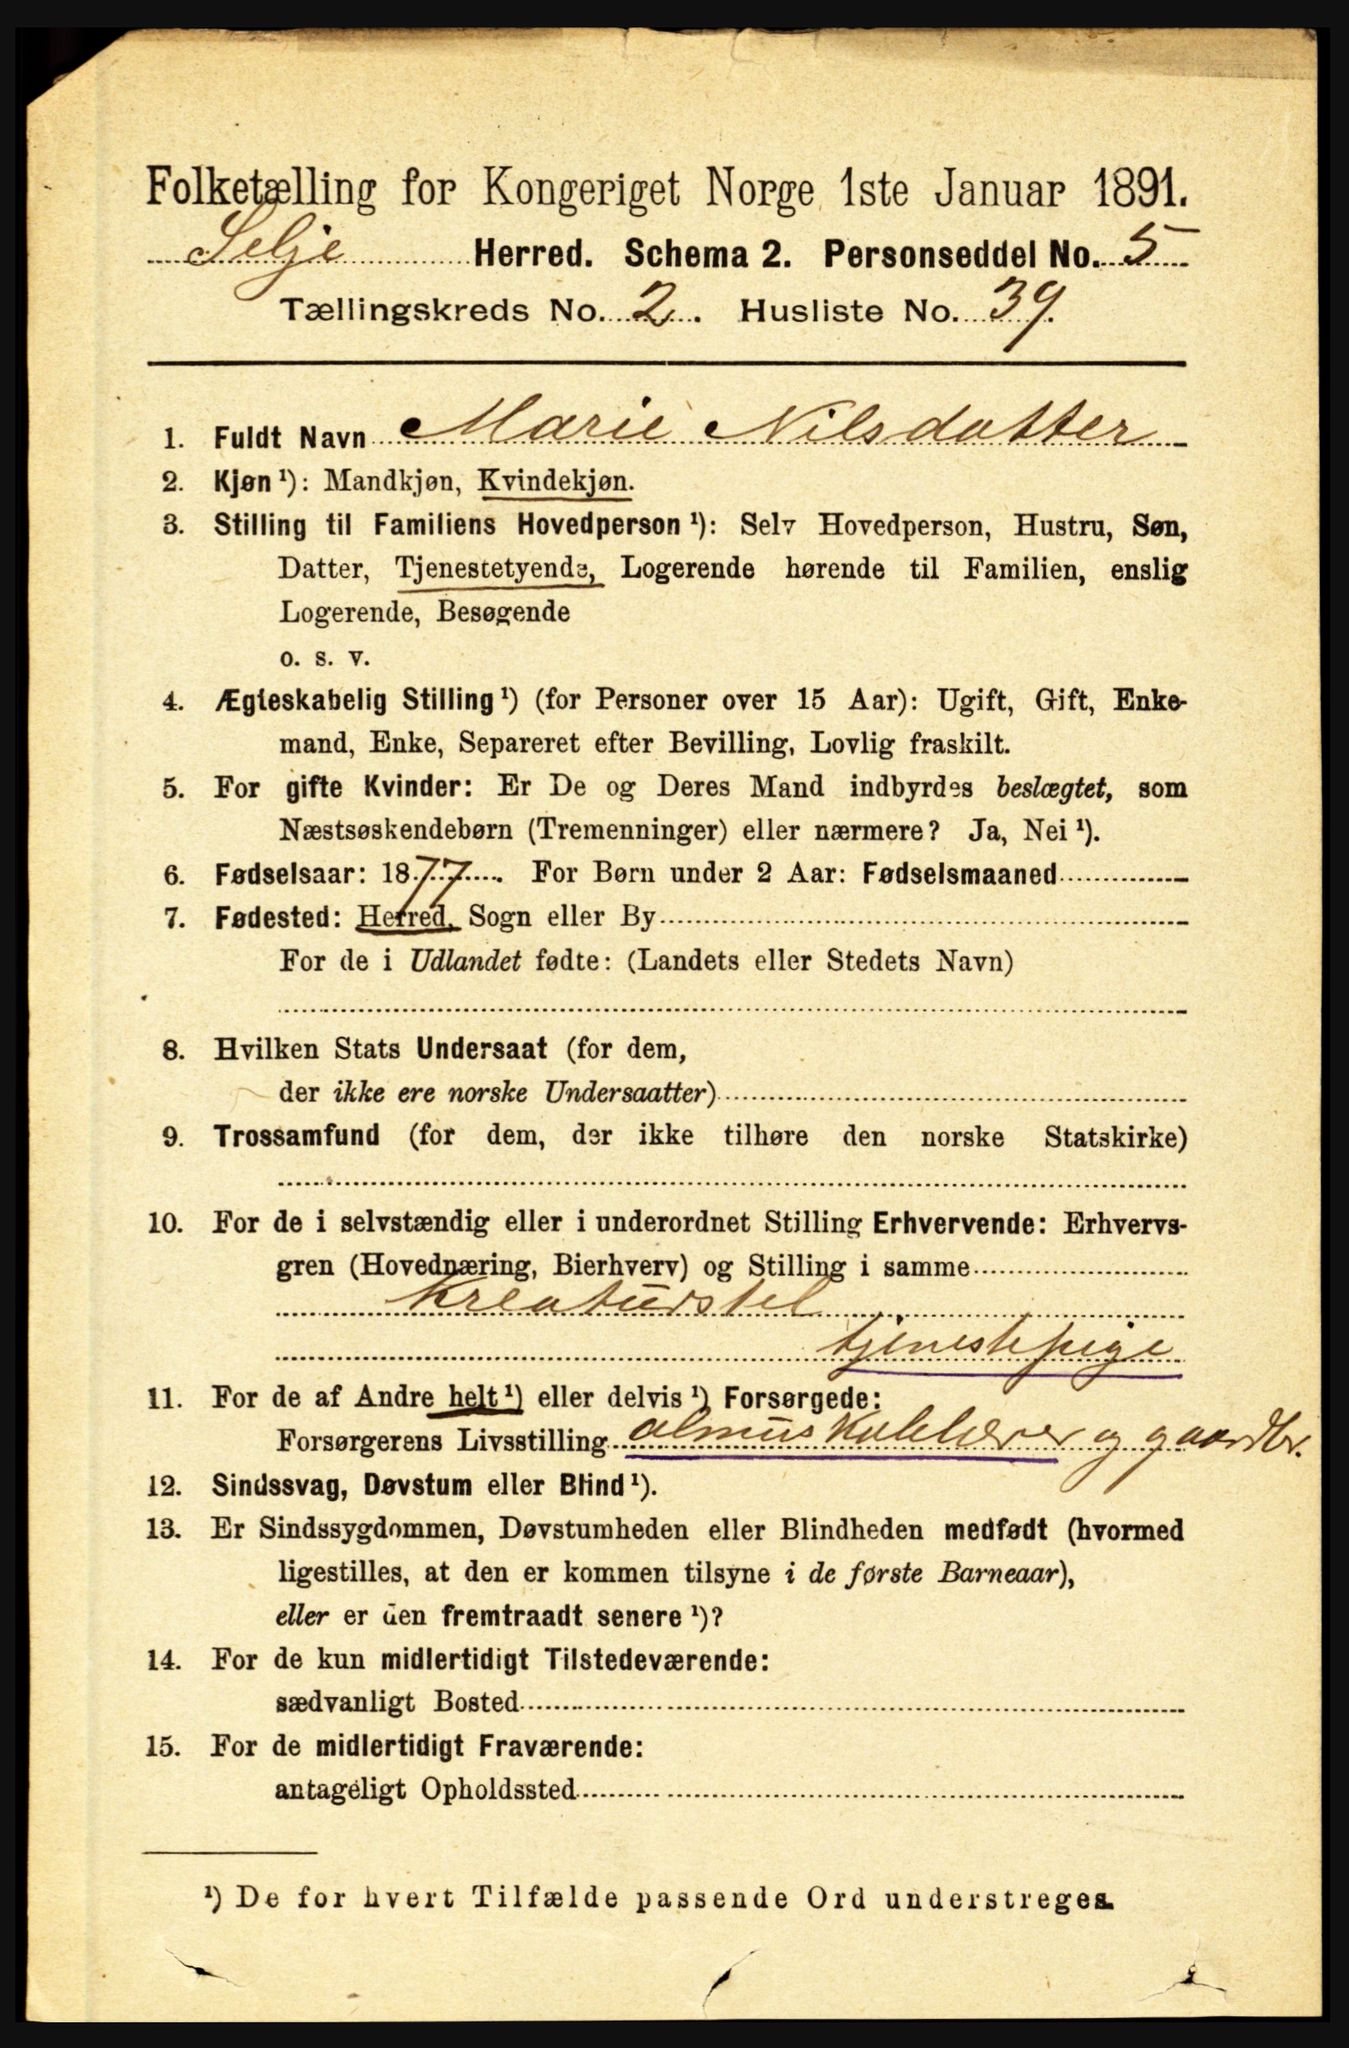 Folketælling for Kongeriget Norge 1ste Januar 1891.
Selje Herred. Schema 2. Personseddel No. 5
Tællingskreds No. 2. Husliste No. 39.
1. Fuldt Navn Marie Nilsdatter
2. Kjøn ¹): Mandkjøn, Kvindekjøn.
3. Stilling til Familiens Hovedperson ¹): Selv Hovedperson, Hustru, Søn,
Datter, Tjenestetyende, Logerende hørende til Familien, enslig
Logerende, Besøgende
o. s. v.
4. Ægteskabelig Stilling ¹) (for Personer over 15 Aar): Ugift, Gift, Enke-
mand, Enke, Separeret efter Bevilling, Lovlig fraskilt.
5. For gifte Kvinder: Er De og Deres Mand indbyrdes beslægtet, som
Næstsøskendebørn (Tremenninger) eller nærmere? Ja, Nei ¹).
6. Fødselsaar: 1877. For Børn under 2 Aar: Fødselsmaaned
7. Fødested: Herred, Sogn eller By
For de i Udlandet fødte: (Landets eller Stedets Navn)
8. Hvilken Stats Undersaat (for dem,
der ikke ere norske Undersaatter)
9. Trossamfund (for dem, der ikke tilhøre den norske Statskirke)
10. For de i selvstændig eller i underordnet Stilling Erhvervende: Erhvervs-
gren (Hovednæring, Bierhverv) og Stilling i samme
Kreaturstel
tjenestepige
11. For de af Andre helt ¹) eller delvis ¹) Forsørgede:
Forsørgerens Livsstilling almuskolelærer og gaardbr.
12. Sindssvag, Døvstum eller Blind ¹).
13. Er Sindssygdommen, Døvstumheden eller Blindheden medfødt (hvormed
ligestilles, at den er kommen tilsyne i de første Barneaar),
eller er den fremtraadt senere ¹)?
14. For de kun midlertidigt Tilstedeværende:
sædvanligt Bosted
15. For de midlertidigt Fraværende:
antageligt Opholdssted
¹) De for hvert Tilfælde passende Ord understreges.